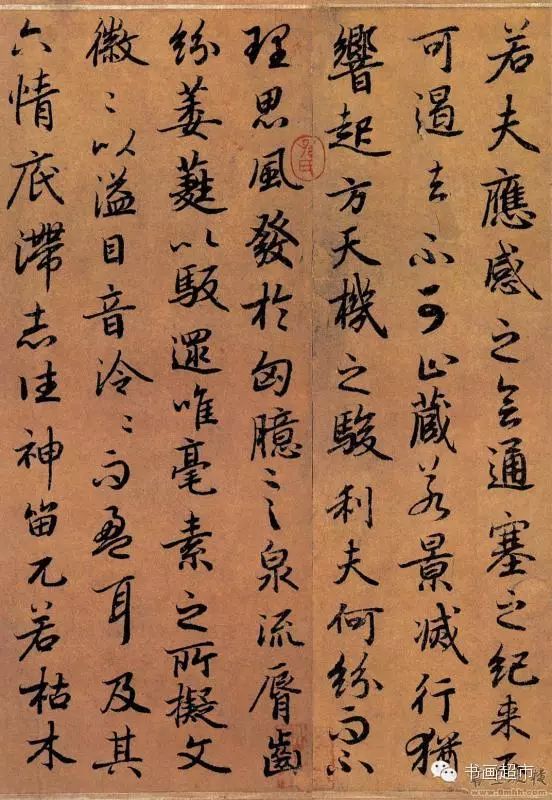 若夫應感之會通塞之紀来不
可遏去不可止藏若景滅行猶
響起方天機之駿利夫何紛而不
理思風發於匈臆言泉流脣齒
紛萎蕤以馺遝唯毫素之所擬文
徽〻以溢目音泠〻而盈耳及其
六情底滯志往神留兀若枯木
书画超市